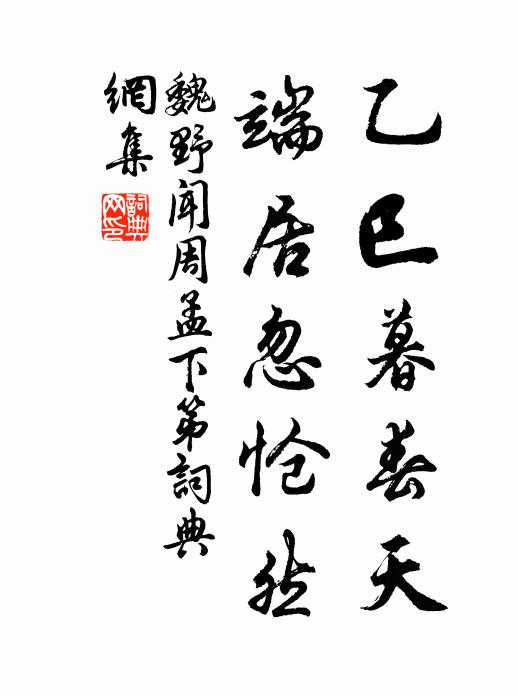 乙巳暮春天
端居忽怆然
魏野闻周孟下第詞典
網集
詞典网印